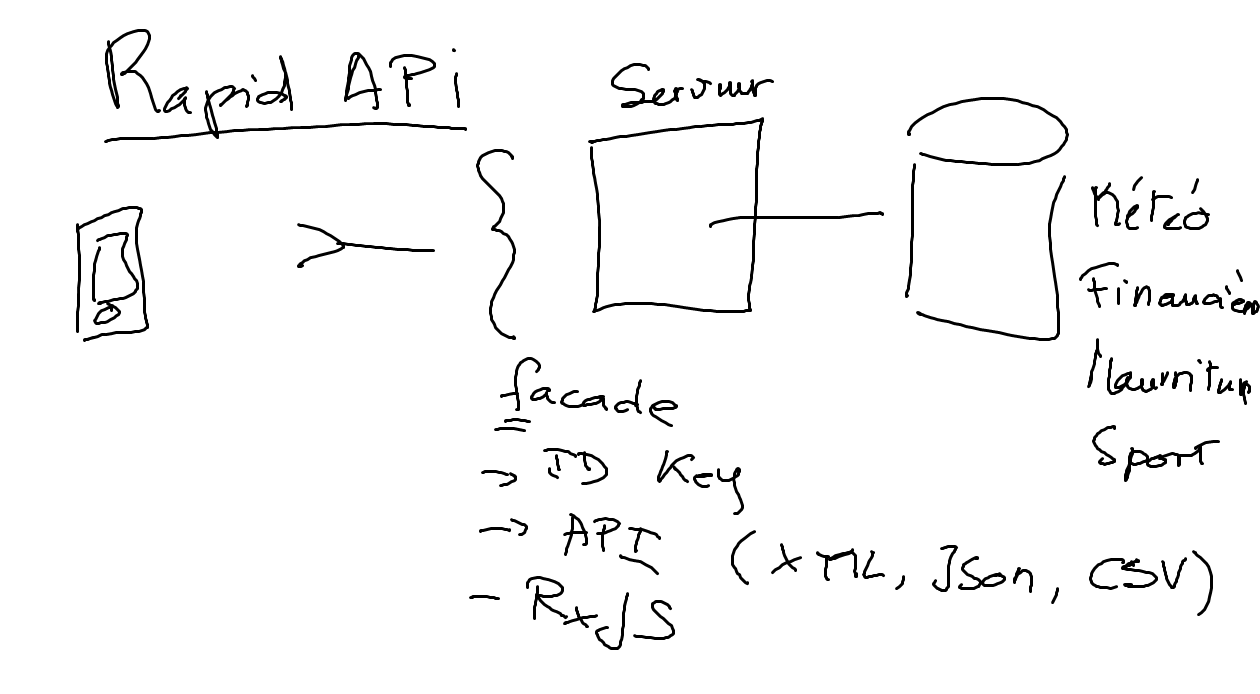 Rapid APi
Serveur
Météo
Financière
Nourriture
Sport
facade
→ ID Key
→ API (XML, JSon, CSV)
- RxJS